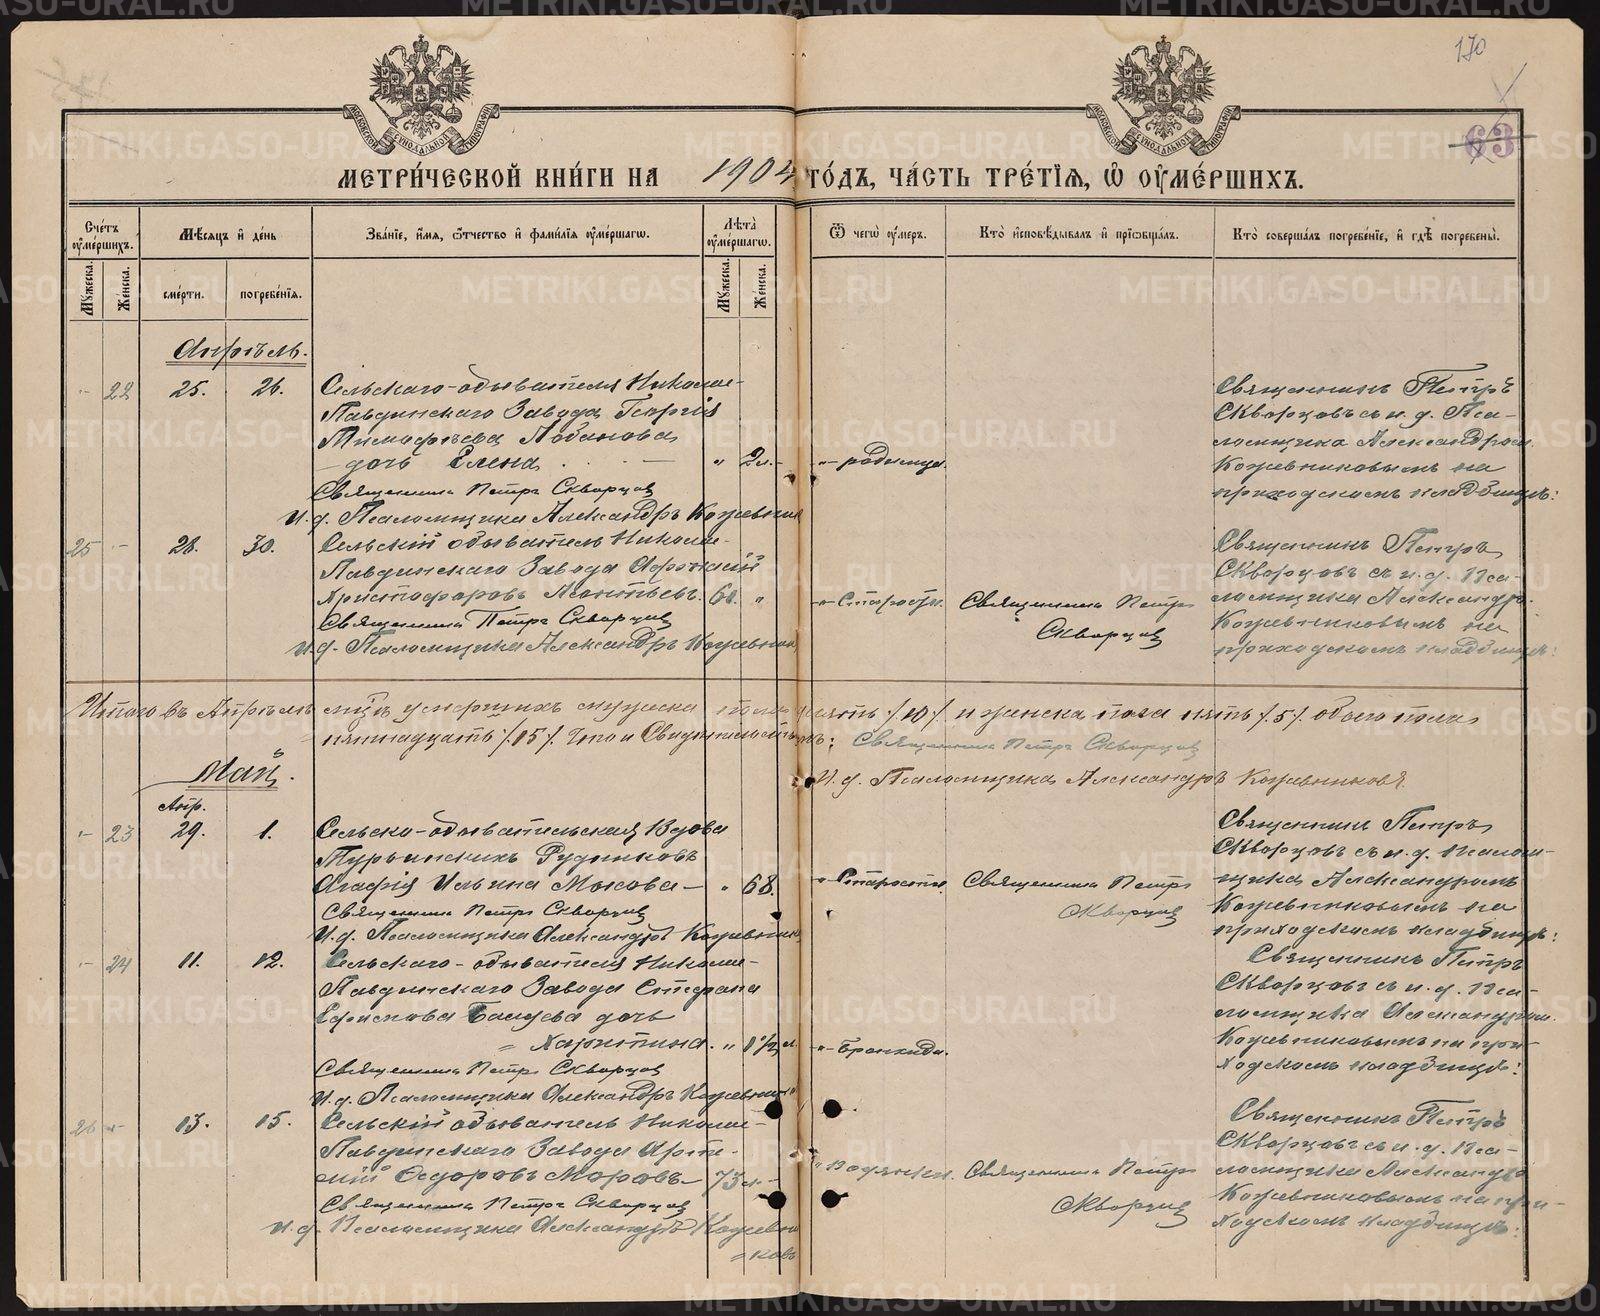 170
63
МОСКОВСКОЙ СѴНОДАЛЬНОЙ ТИПОГРАФІИ
МОСКОВСКОЙ СѴНОДАЛЬНОЙ ТИПОГРАФІИ
МЕТРИ́ЧЕСКОЙ КНИ́ГИ НА 1904 ГО́ДЪ, ЧА́СТЬ ТРЕ́ТЇѦ, Ѡ҆ ОУ҆МЕ́РШИХЪ.
Сче́тъ оу҆ме́ршихъ.
Мꙋ́жеска.
Же́нска.
Мѣ́сѧцъ и҆ де́нь
сме́рти.
погребе́нїѧ.
Зва́нїе, и҆́мѧ, ѻ҆́тчество и҆ фами́лїѧ оу҆ме́ршагѡ.
Лѣ́та оу҆ме́ршагѡ.
Мꙋ́жеска.
Же́нска.
Ѿ чегѡ̀ оу҆́меръ.
Кто̀ и҆сповѣ́дывалъ и҆ прїѡбща́лъ.
Кто̀ соверша́лъ погребе́нїе, и҆ гдѣ̀ погребены̀.
Апрѣль.
- 22 25. 26. Сельскаго-обывателя Николае-
Павдинскаго Завода Георгія
Тимофѣева Лобанова
- дочь Елена - " 2 л. -
Священникъ Петръ Скворцов
И. д. Псаломщика Александръ Кожевник
"- родимца.
Священникъ Петръ
Скворцовъ съ и. д. Пса-
ломщика Александром
Кожевниковымъ на
приходскомъ кладбищѣ:
25 - 28. 30. Сельскій обыватель Николае-
Павдинскаго Завода Афонасій
Христофоровъ Леонтьевъ. "
Священникъ Петръ Скворцов
И. д. Псаломщика Александръ Кожевник
"- Старости.
Священникъ Петръ
Скворцов
Священникъ Петръ
Скворцовъ съ и. д. Пса-
ломщика Александро-
Кожевниковымъ на
приходскомъ кладбищѣ:
Итого въ Апрѣлѣ м-цѣ умершихъ мужска пола десять /10/ и женска пола пять /5/ обоего пола
пятнадцать /15/. Что и Свидѣтельствуемъ: Священникъ Петръ Скворцов
И. д. Псаломщика Александръ Кожевниковъ.
Май.
Апр.
- 23 29. 1. Сельско-обывательская Вдова
Турьинскихъ Рудниковъ
Агафія Ильина Мокова - " 68.
Священникъ Петръ Скворцов
И. д. Псаломщика Александръ Кожевник
"- Старости.
Священникъ Петръ
Скворцов
Священникъ Петръ
Скворцовъ съ и. д. Псалом-
щика Александромъ
Кожевниковымъ на
приходскомъ кладбищѣ:
- 24 11. 12. Сельскаго-обывателя Николае-
Павдинскаго Завода Стефана
Ефимова дочь
= Харитина. " 1½ л.
Священникъ Петръ Скворцов
И. д. Псаломщика Александръ Кожевник
"- Бронхида.
Священникъ Петръ
Скворцовъ съ и. д. Пса-
ломщика Александром.
Кожевниковымъ на при-
ходскомъ кладбищѣ:
26 - 13. 15. Сельскій обыватель Николае-
Павдинскаго Завода Арте-
мій Ѳедоровъ Моровъ - 73 л. -
Священникъ Петръ Скворцов
И. д. Псаломщика Александръ Кожевни
= ковъ
" Водянки.
Священникъ Петръ
Скворцов
Священникъ Петръ
Скворцовъ съ и. д. Пса-
ломщика Александро
Кожевниковымъ на при-
ходскомъ кладбищѣ:
METRIKI.GASO-URAL.RU